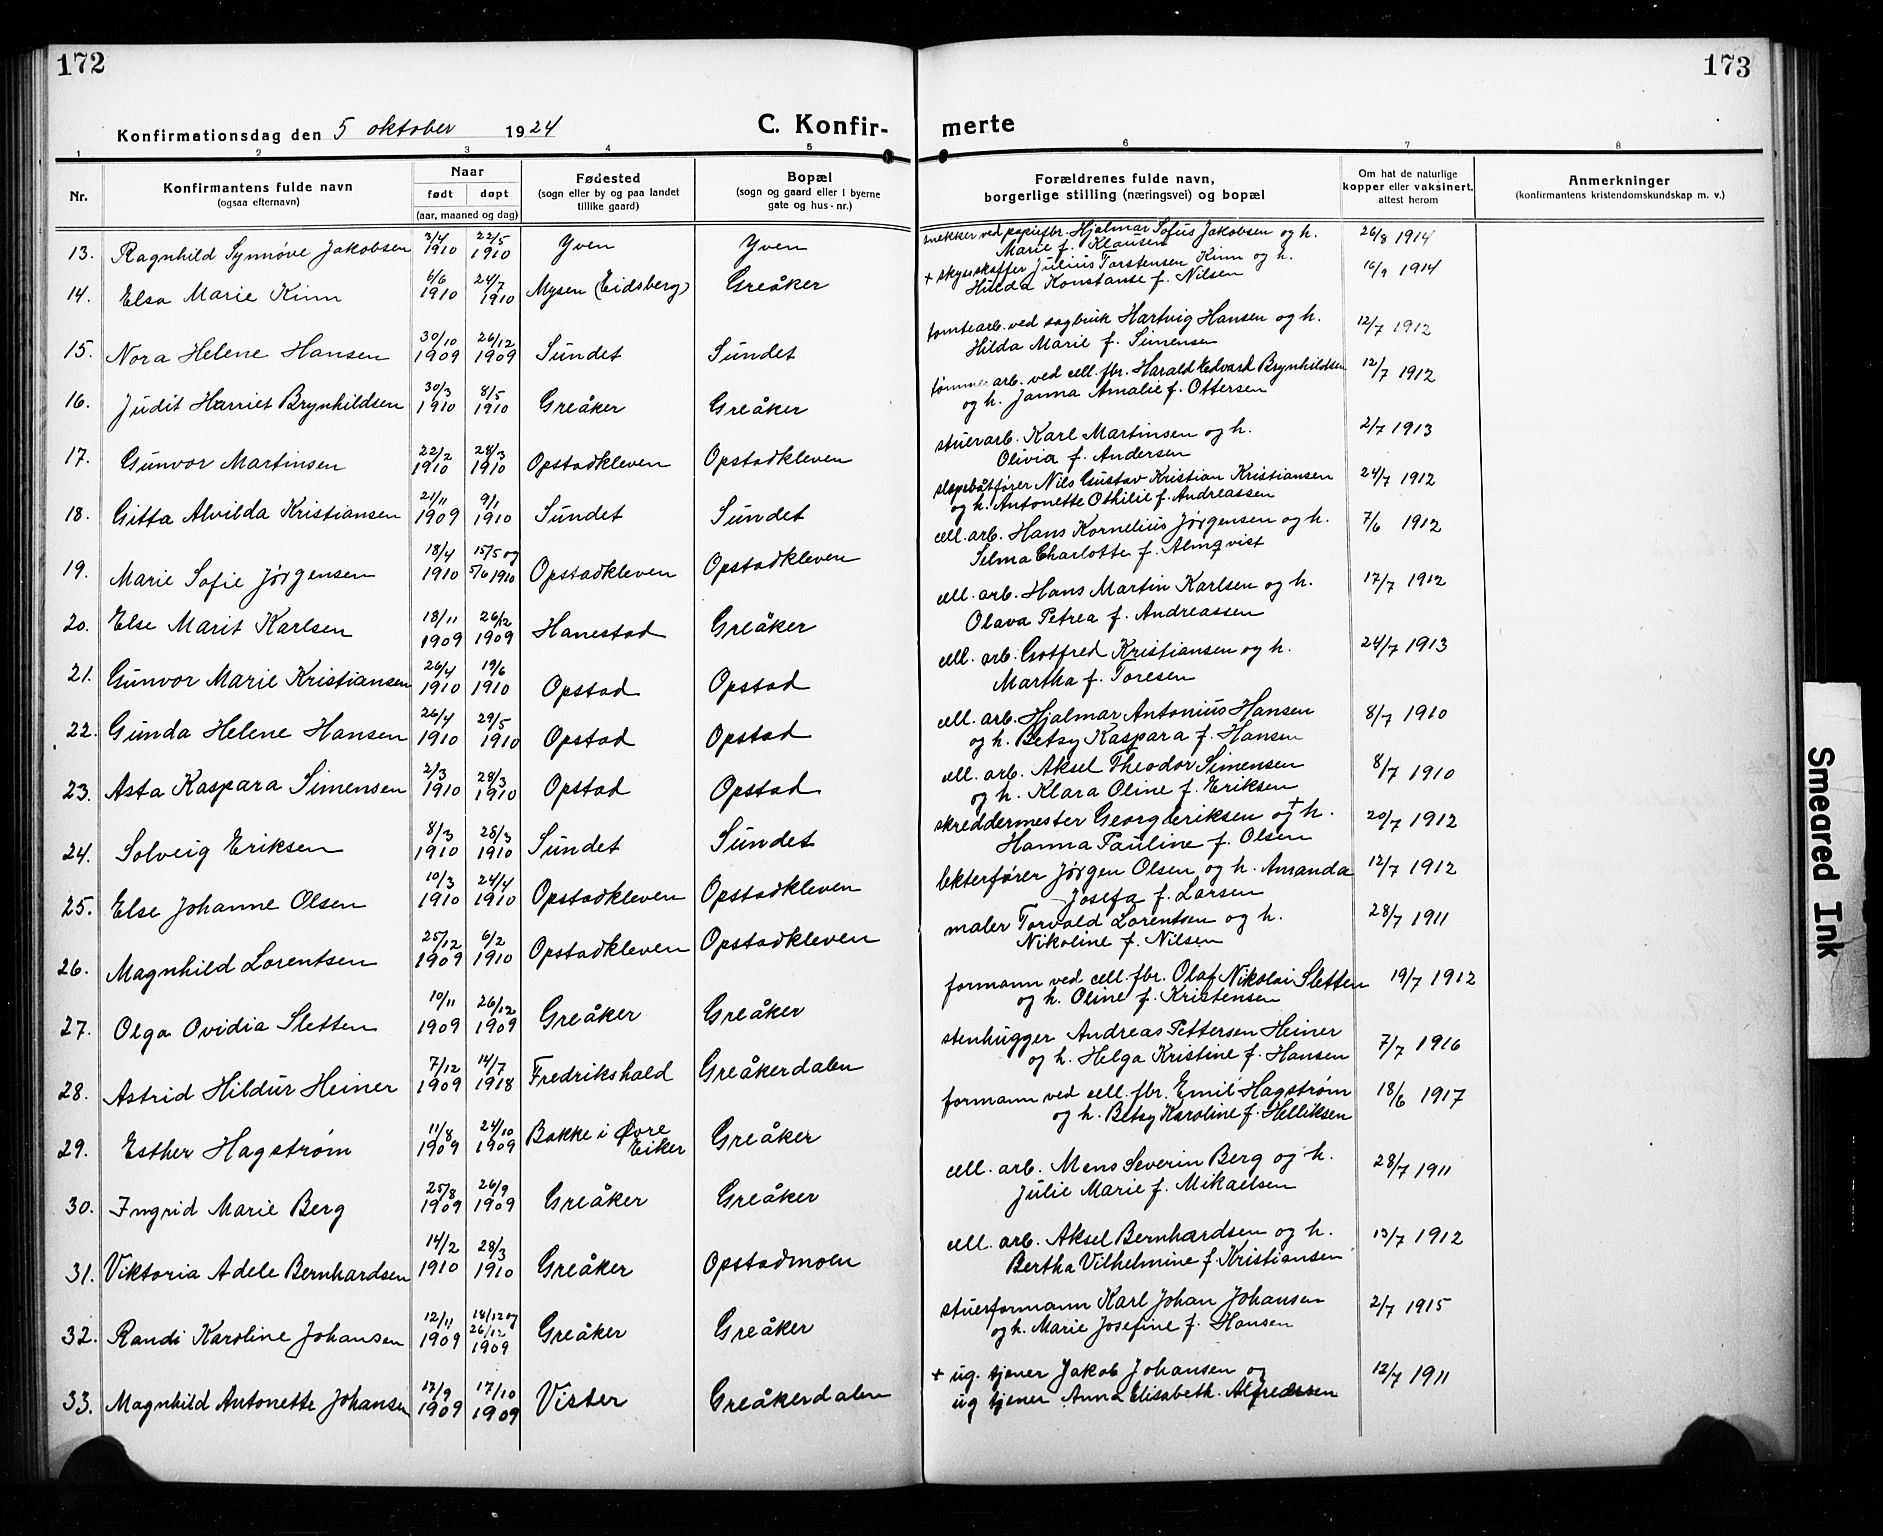 172
173
Konfirmationsdag den 5 oktober 1924
C. Konfir-
merte
1 2 3 4 5 6 7 8
Nr.
Konfirmantens fulde navn
(ogsaa efternavn)
Naar
født døpt
(aar, maaned og dag)
Fødested
(sogn eller by og paa landet
tillike gaard)
Bopæl
(sogn og gaard eller i byerne
gate og hus-nr.)
Forældrenes fulde navn,
borgerlige stilling (næringsvei) og bopæl
Om hat de naturlige
kopper eller vaksinert,
attest herom
Anmerkninger
(konfirmantens kristendomskundskap m. v.)
13. Ragnhild Synnøve Jakobsen 3/4 1910 22/5 1910 Yven Yven snekker ved papirfbr. Hjalmar Sofus Jakobsen og h. 26/8 1914
Marie f. Klausen
14. Elsa Marie Kinn 6/6 1910 24/7 1910 Mysen (Eidsberg) Greåker + skysskaffer Julius Torstensen Kinn og h. 16/9 1914
Hilda Konstanse f. Nilsen
15. Nora Helene Hansen 30/10 1909 26/12 1909 Sundet Sundet tomtearb. ved sagbruk Hartvig Hansen og h. 12/7 1912
Hilda Marie f. Simensen
16. Judit Harriet Brynhildsen 30/3 1910 8/5 1910 Greåker Greåker tømmerarb. ved cell. fbr. Harald Edvard Brynhildsen 12/7 1912
og h. Janna Amalie f. Ottersen
17. Gunvor Martinsen 22/2 1910 28/3 1910 Opstadkleven Opstadkleven stuerarb. Karl Martinsen og h. 2/7 1913
Olivia f. Andersen
18. Gitta Alvilda Kristiansen 21/11 1909 9/1 1910 Sundet Sundet slepebåtfører Nils Gustav Kristian Kristiansen 24/7 1912
og h. Antonette Othilie f. Andreassen
19. Marie Sofie Jørgensen 18/4 1910 15/5 og 5/6 1910 Opstadkleven Opstadkleven cell. arb. Hans Kornelius Jørgensen og h. 7/6 1912
Selma Charlotte f. Almqvist
20. Else Marit Karlsen 18/11 1909 26/12 1909 Hanestad Greåker cell. arb. Hans Martin Karlsen og h. 17/7 1912
Olava Petrea f. Andreassen
21. Gunvor Marie Kristiansen 26/4 1910 19/6 1910 Opstad Opstad cell. arb. Gotfred Kristiansen og h. 24/7 1913
Martha f. Toresen
22. Gunda Helene Hansen 26/4 1910 29/5 1910 Opstad Opstad cell. arb. Hjalmar Antonius Hansen 8/7 1910
og h. Betsy Kaspara f. Hansen
23. Asta Kaspara Simensen 2/3 1910 28/3 1910 Opstad Opstad cell. arb. Aksel Theodor Simensen 8/7 1910
og h. Klara Oline f. Eriksen
24. Solveig Eriksen 8/3 1910 28/3 1910 Sundet Sundet skreddermester Georg Eriksen og + h. 20/7 1912
Hanna Pauline f. Olsen
25. Else Johanne Olsen 10/3 1910 24/4 1910 Opstadkleven Opstadkleven lekterfører Jørgen Olsen og h. Amanda 12/7 1912
Josefa f. Larsen
26. Magnhild Lorentsen 25/12 1909 6/2 1910 Opstadkleven Opstadkleven maler Torvald Lorentsen og h. 28/7 1911
Nikoline f. Nilsen
27. Olga Ovidia Sletten 10/11 1909 26/12 1909 Greåker Greåker formann ved cell. fbr. Olaf Nikolai Sletten 19/7 1912
og h. Oline f. Kristensen
28. Astrid Hildur Heiner 7/12 1909 14/7 1918 Fredrikshald Greåkerdalen stenhugger Andreas Pettersen Heiner 7/7 1916
og h. Helga Kristine f. Hansen
29. Esther Hagstrøm 11/8 1909 24/10 1909 Bakke i Øvre Eiker Greåker formann ved cell. fbr. Emil Hagstrøm 18/6 1917
og h. Betsy Karoline f. Helliksen
30. Ingrid Marie Berg 25/8 1909 26/9 1909 Greåker Greåker cell. arb. Mens Severin Berg og h. 28/7 1911
Julie Marie f. Mikaelsen
31. Viktoria Adele Bernhardsen 14/2 1910 28/3 1910 Greåker Opstadmoen cell. arb. Aksel Bernhardsen og h. 13/7 1912
Bertha Vilhelmine f. Kristiansen
32. Randi Karoline Johansen 12/11 1909 18/12 og 26/12 1909 Greåker Greåker stuerformann Karl Johan Johansen 2/7 1915
og h. Marie Josefine f. Hansen
33. Magnhild Antonette Johansen 12/9 1909 17/10 1909 Vister Greåkerdalen + ug. tjener Jakob Johansen og 12/7 1911
ug tjener Anna Elisabeth Alfredsen
Smeared Ink